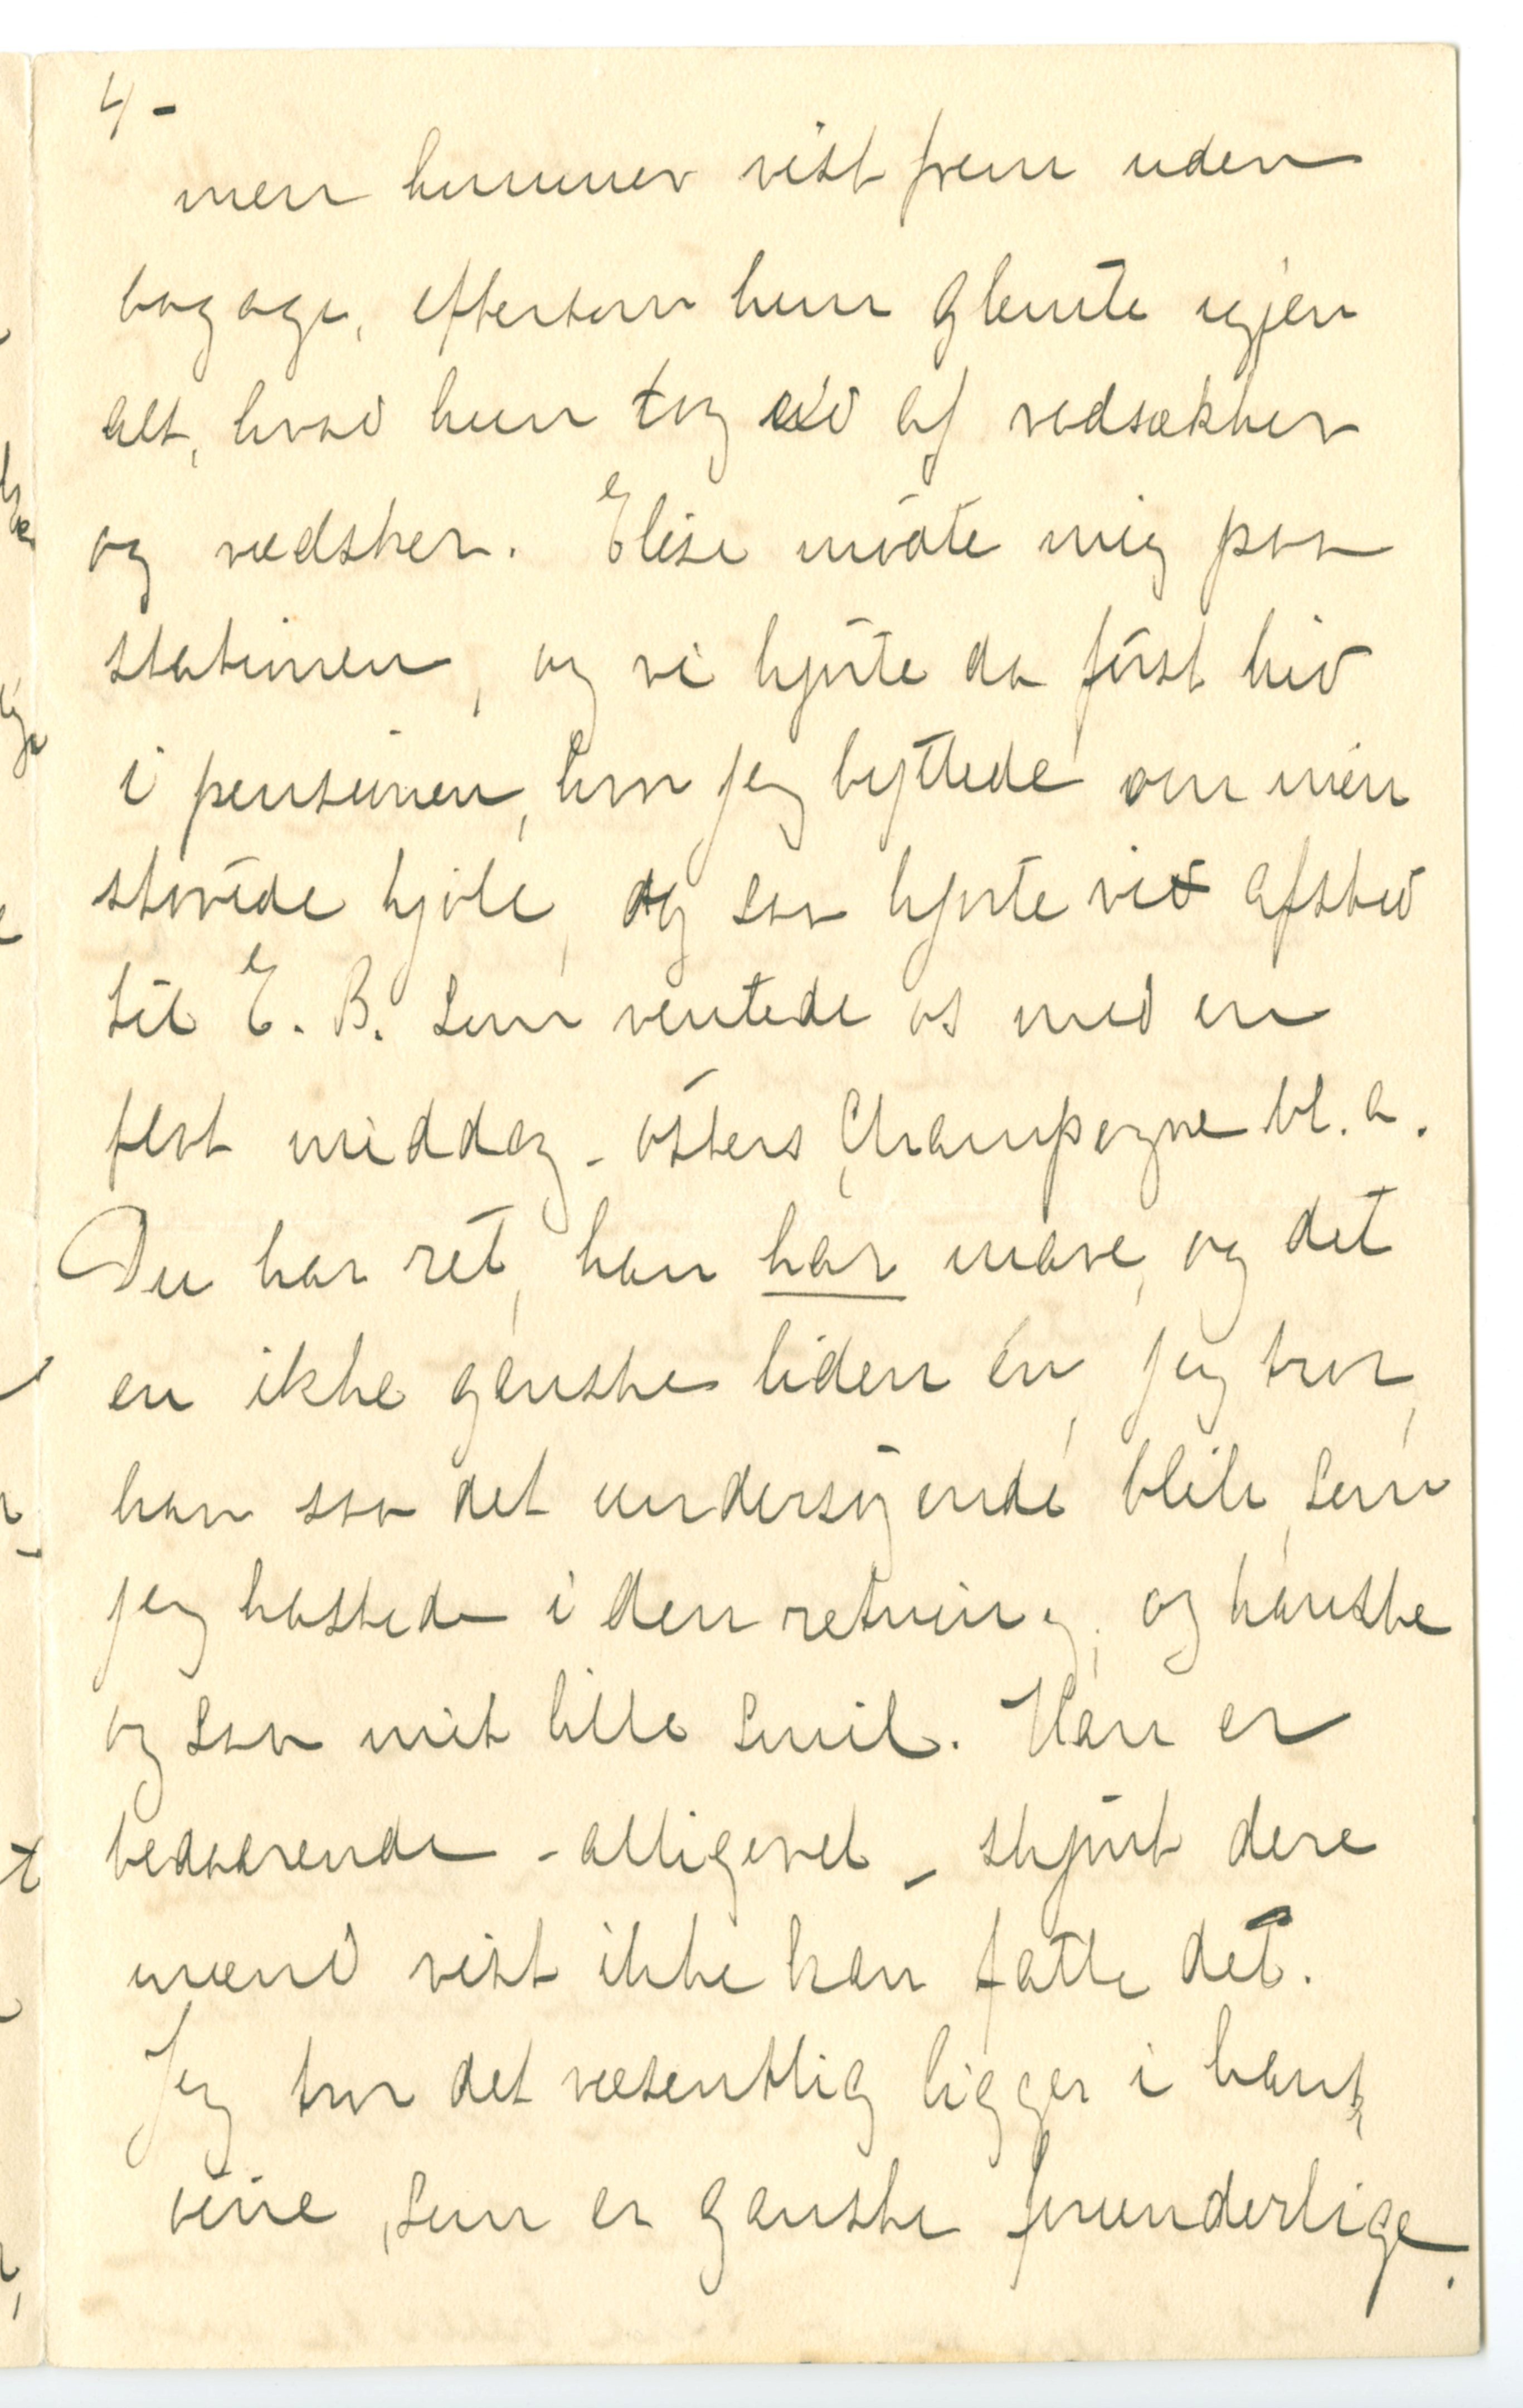 4-
men kommer vist frem uden
bagage, eftersom hun glemte igjen
alt, hvad hun tog ud af vadsækker
og vadsker. Elise mødte mig paa
stationen, og vi kjørte da først hid
i pensionen, hvor jeg byttede om min
støvede kjole, og saa kjørte vi afsted
til E. B. som ventede os med en
flot middag - østers Champagne bl. a.
Du har ret, han har mave, og det
en ikke ganske liden én, jeg tror,
han saa det undersøgende blik, som
jeg kastede i den retning, og kanske
og saa mit lille smil. Han er
bedaarende - alligevel - skjønt dere
mænd vist ikke kan fatte det.
Jeg tror det væsentlig ligger i hans
øine, som er ganske forunderlige.